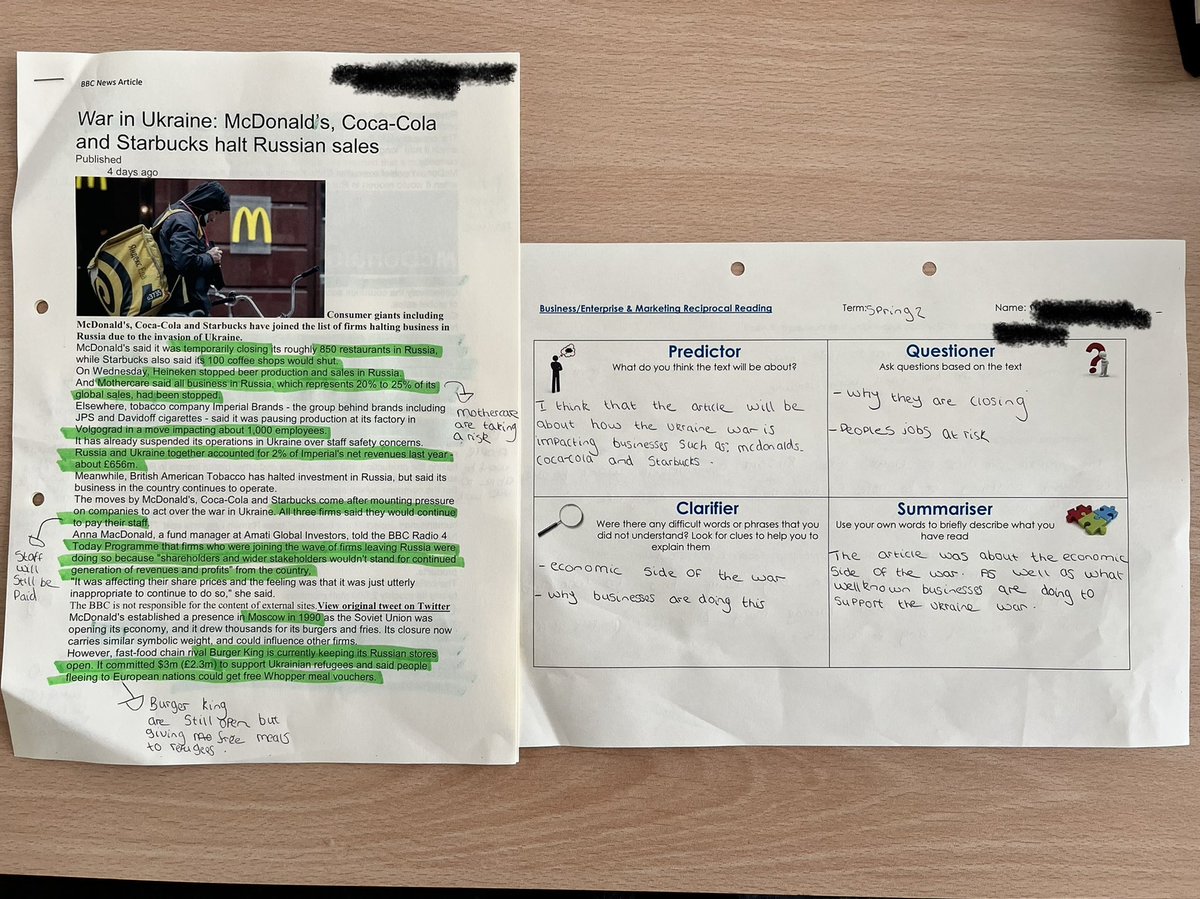 BBC News Article
War in Ukraine: McDonald's, Coca-Cola
and Starbucks halt Russian sales
Published
4 days ago
Consumer giants including
McDonald's, Coca-Cola and Starbucks have joined the list of firms halting business in
Russia due to the invasion of Ukraine.
McDonald's said it was temporarily closing its roughly 850 restaurants in Russia,
while Starbucks also said its 100 coffee shops would shut.
On Wednesday, Heineken stopped beer production and sales in Russia.
And Mothercare said all business in Russia, which represents 20% to 25% of its
global sales, had been stopped.
Elsewhere, tobacco company Imperial Brands - the group behind brands including
JPS and Davidoff cigarettes - said it was pausing production at its factory in
Volgograd in a move impacting about 1,000 employees.
It has already suspended its operations in Ukraine over staff safety concerns.
Russia and Ukraine together accounted for 2% of Imperial's net revenues last year -
about £656m.
Meanwhile, British American Tobacco has halted investment in Russia, but said its
business in the country continues to operate.
The moves by McDonald's, Coca-Cola and Starbucks come after mounting pressure
on companies to act over the war in Ukraine. All three firms said they would continue
to pay their staff.
Anna MacDonald, a fund manager at Amati Global Investors, told the BBC Radio 4
Today Programme that firms who were joining the wave of firms leaving Russia were
doing so because "shareholders and wider stakeholders wouldn't stand for continued
generation of revenues and profits" from the country.
"It was affecting their share prices and the feeling was that it was just utterly
inappropriate to continue to do so," she said.
The BBC is not responsible for the content of external sites. View original tweet on Twitter
McDonald's established a presence in Moscow in 1990 as the Soviet Union was
opening its economy, and it drew thousands for its burgers and fries. Its closure now
carries similar symbolic weight, and could influence other firms.
However, fast-food chain rival Burger King is currently keeping its Russian stores
open. It committed $3m (£2.3m) to support Ukrainian refugees and said people
fleeing to European nations could get free Whopper meal vouchers.
mothercare
are taking
a risk
Staff
will
Still be
Paid
Burger king
are Still open but
giving free meals
to refugees.
Business/Enterprise & Marketing Reciprocal Reading
Term: Spring 2
Name:
Predictor
What do you think the text will be about?
I think that the article will be
about how the Ukraine war is
impacting businesses such as; mcdonalds.
coca-cola and Starbucks.
Questioner
Ask questions based on the text
- why they are closing
- Peoples jobs at risk
Clarifier
Were there any difficult words or phrases that you
did not understand? Look for clues to help you to
explain them
- economic side of the war
- why businesses are doing this
Summariser
Use your own words to briefly describe what you
have read
The article was about the economic
side of the war. As well as what
well known businesses are doing to
support the ukraine war.